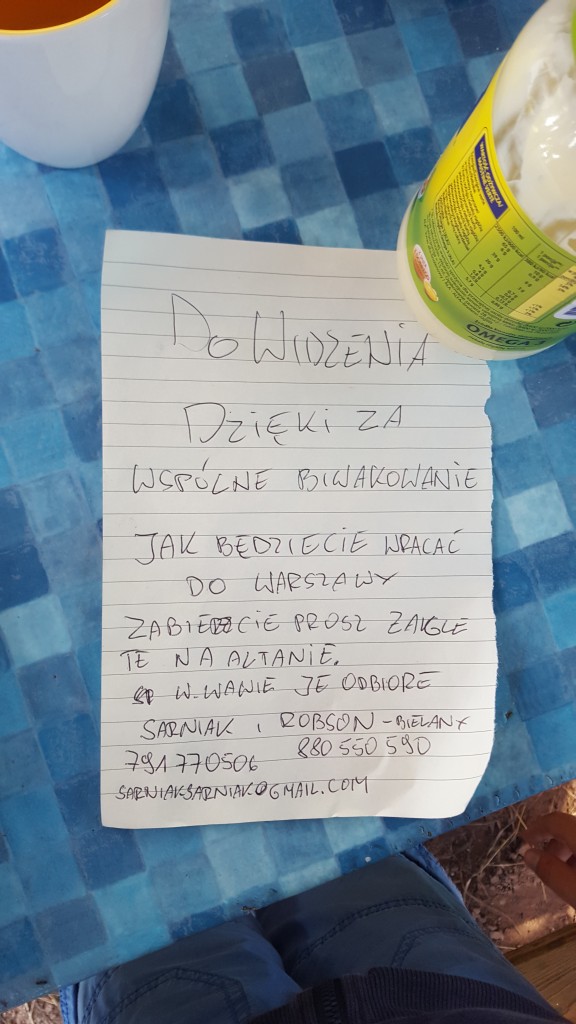 DO WIDZENIA
DZIĘKI ZA
WSPÓLNE BIWAKOWANIE
JAK BĘDZIECIE WRACAĆ
DO WARSZAWY
ZABIERZCIE PROSZ ŻAGLE
TE NA ALTANIE.
W W-WANIE JE ODBIORE
SARNIAK i ROBSON - BIELANY
791 770506 880 550 590
SARNIAKSARNIAK@GMAIL.COM
OMEGA 3